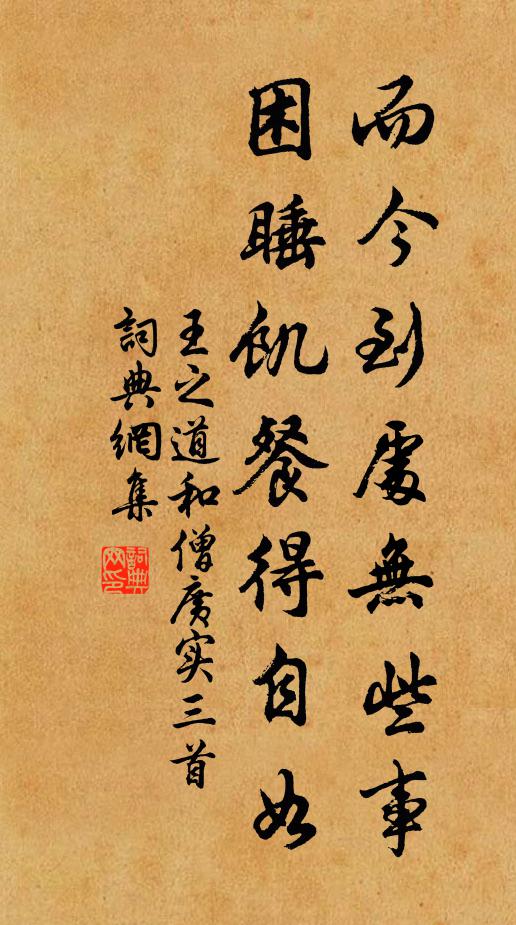 而今到處無些事
困睡飢餐得自如
王之道和僧廣实三首
詞典網集
詞典網印